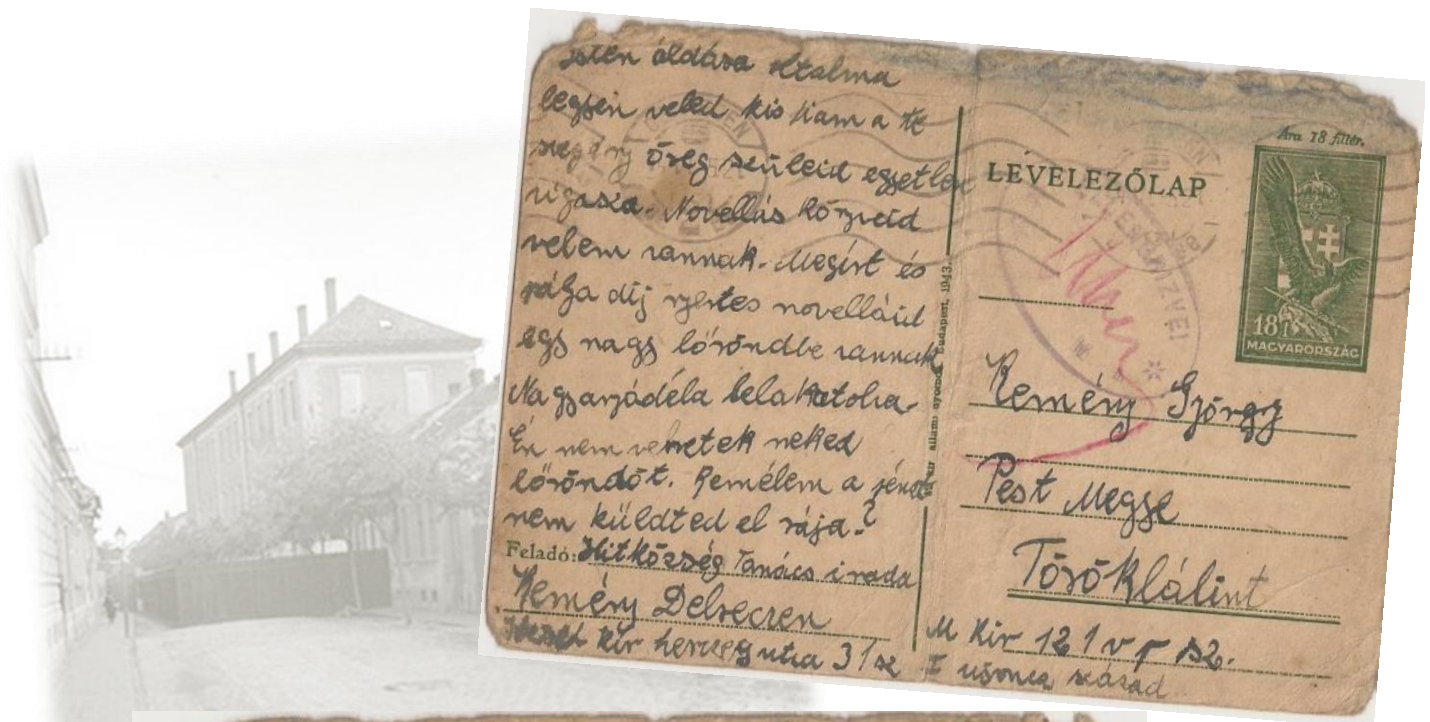 Isten áldása oltalma
legyen veled kis fiam a te
szegény öreg szüleid egyetlen
vigasza. Novellás könyveid
velem vannak. Megírt és
pálya díj nyertes novelláid
egy nagy böröndbe vannak
Nagyanyádéla belakatolva.
Én nem vehetek neked
böröndöt. Remélem a pénzt
nem küldted el rája.?
Feladó: Hitközség Tanács iroda
Remény Debreczen
kir herczeg utca 31 sz
Ára 18 fillér.
LEVELEZŐLAP
18f
MAGYARORSZÁG
állami nyomda, Budapest, 1943.
Remény György
Pest Megye
Törökbálint
M Kir 121 v sz.
I ujonca század